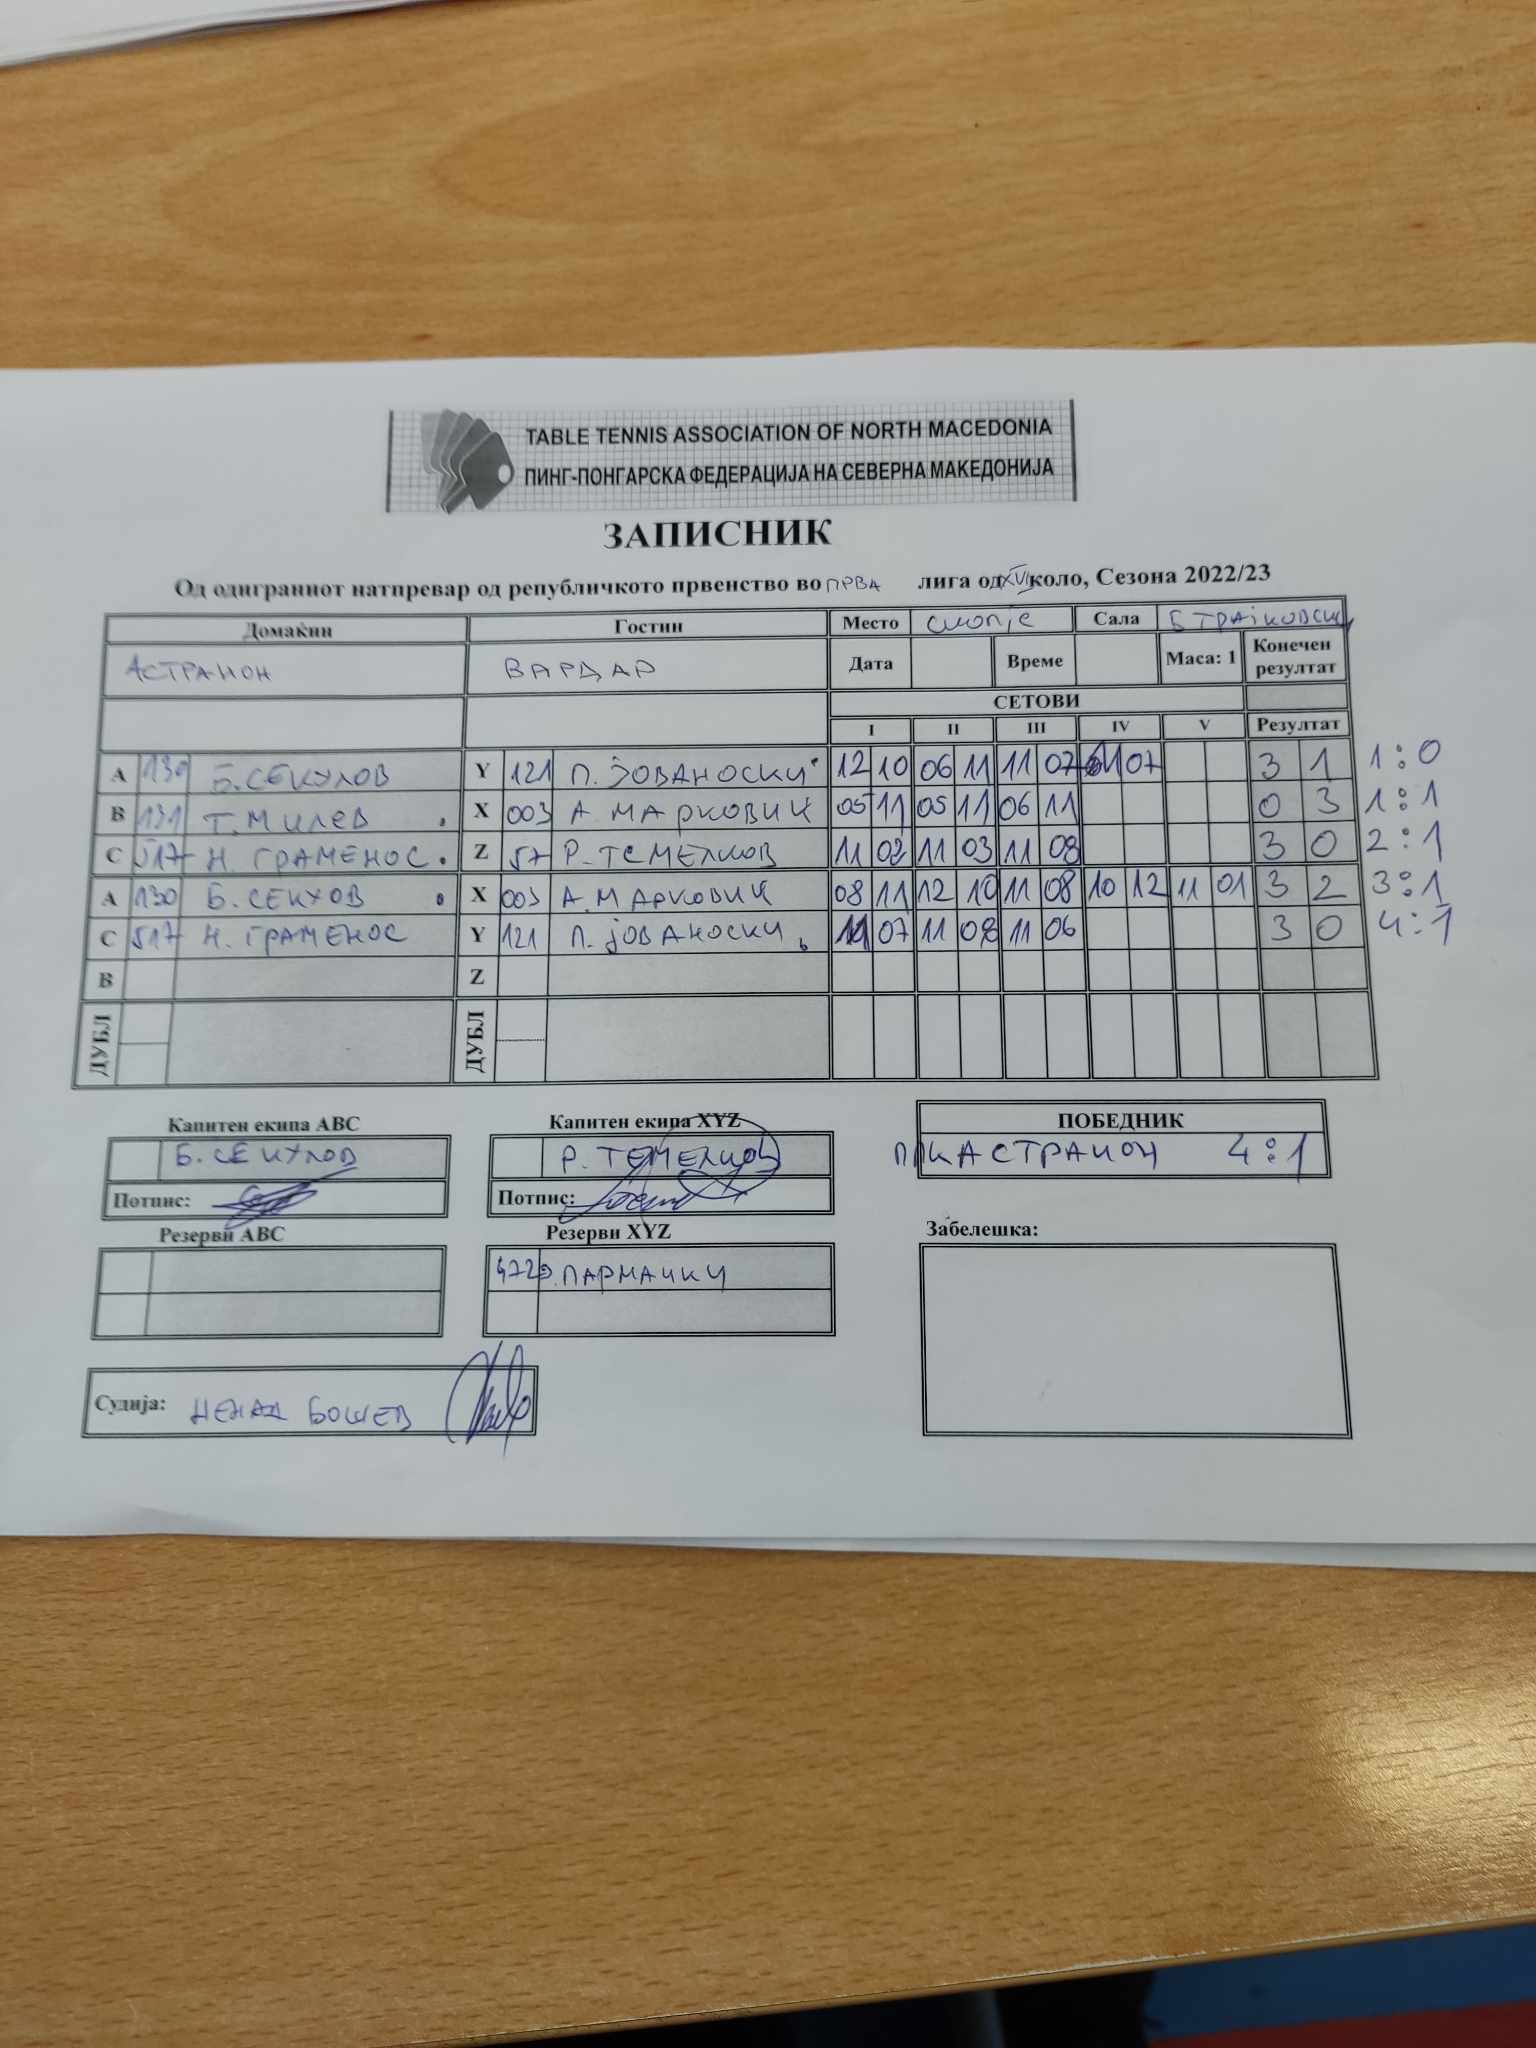 TABLE TENNIS ASSOCIATION OF NORTH MACEDONIA
ПИНГ-ПОНГАРСКА ФЕДЕРАЦИЈА НА СЕВЕРНА МАКЕДОНИЈА
ЗАПИСНИК
Од одиграниот натпревар од републичкото првенство во ПРВА лига од XVI коло, Сезона 2022/23
Домаќин Гостин Место СКОПЈЕ Сала Б ТРАЈКОВСКИ
АСТРАИОН ВАРДАР Дата Време Маса: 1 Конечен резултат
СЕТОВИ
I II III IV V Резултат
A 130 Б.СЕКУЛОВ Y 121 П. ЈОВАНОСКИ 12 10 06 11 11 07 11 07 3 1 1:0
B 131 Т.МИЛЕВ X 003 А.МАРКОВИЌ 05 11 05 11 06 11 0 3 1:1
C 517 Н. ГРАМЕНОС Z 57 Р.ТЕМЕЛКОВ 11 02 11 03 11 08 3 0 2:1
A 130 Б.СЕКУЛОВ X 003 А.МАРКОВИЌ 08 11 12 10 11 08 10 12 11 01 3 2 3:1
C 517 Н. ГРАМЕНОС Y 121 П. ЈОВАНОСКИ 11 07 11 08 11 06 3 0 4:1
B Z
ДУБЛ ДУБЛ
Капитен екипа ABC Капитен екипа XYZ ПОБЕДНИК
Б.СЕКУЛОВ Р. ТЕМЕЛКОВ ППК АСТРАИОН 4:1
Потпис: Потпис:
Резерви ABC Резерви XYZ Забелешка:
472 ПАРМАЧКИ
Судија: НЕНАД БОШЕВ